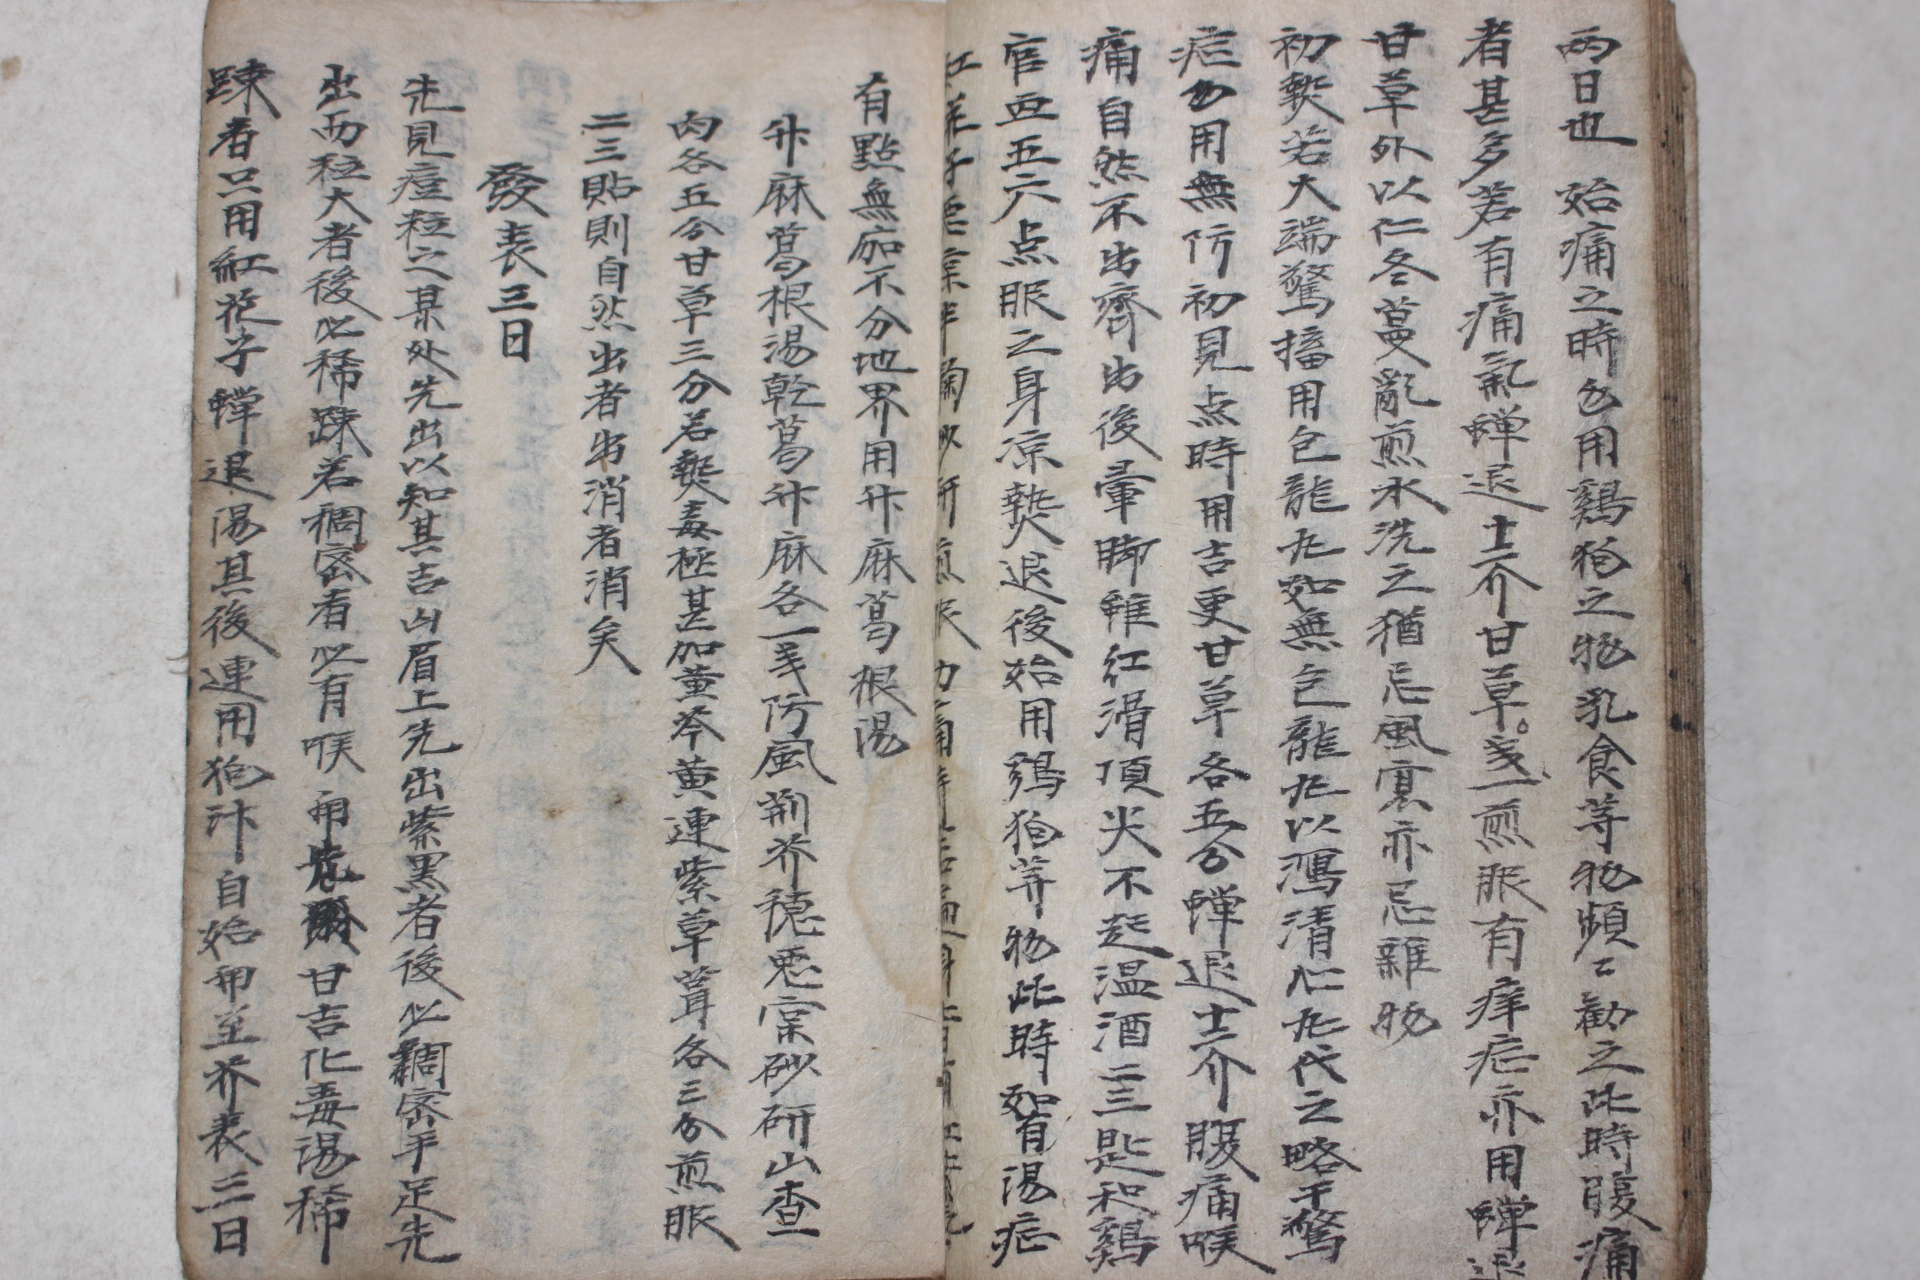 兩日也 始痛之時也用鷄狗之物乳食等物頻〻勸之此時腹痛
者甚多若有痛氣蟬退士介甘草戔一煎服有痒疟亦用蟬退
甘草外以仁冬蔓亂煎水洗之猶忌風寒亦忌雜物
初熱若大端驚搐用包龍丸如無包龍丸以瀉清心丸代之略干驚
疟勿用無仿初見点時用吉更甘草各五分蟬退士介腹痛喉
痛自然不出齊出後暈脚雖紅滑頂尖不起温酒二三匙和鷄
官血五六点服之身凉熱退後始用鷄狗等物此時如有湯疟
有點無痂不分地界用升麻葛根湯
升麻葛根湯乾葛升麻各一戔仿風荊芥穗惡宲砂研山查
肉各五分甘草三分若熱毒極甚加黄芩黄連紫草茸各三分煎服
二三貼則自然出者出消者消矣
發表三日
先見痘粒之某处先出以知其吉凶眉上先出紫黑者後必稠密手足先
出而粒大者後必稀踈若稠密者必有喉 用 甘吉化毒湯稀
踈者只用紅花子蟬退湯其後連用狗汁自始用至芥表三日